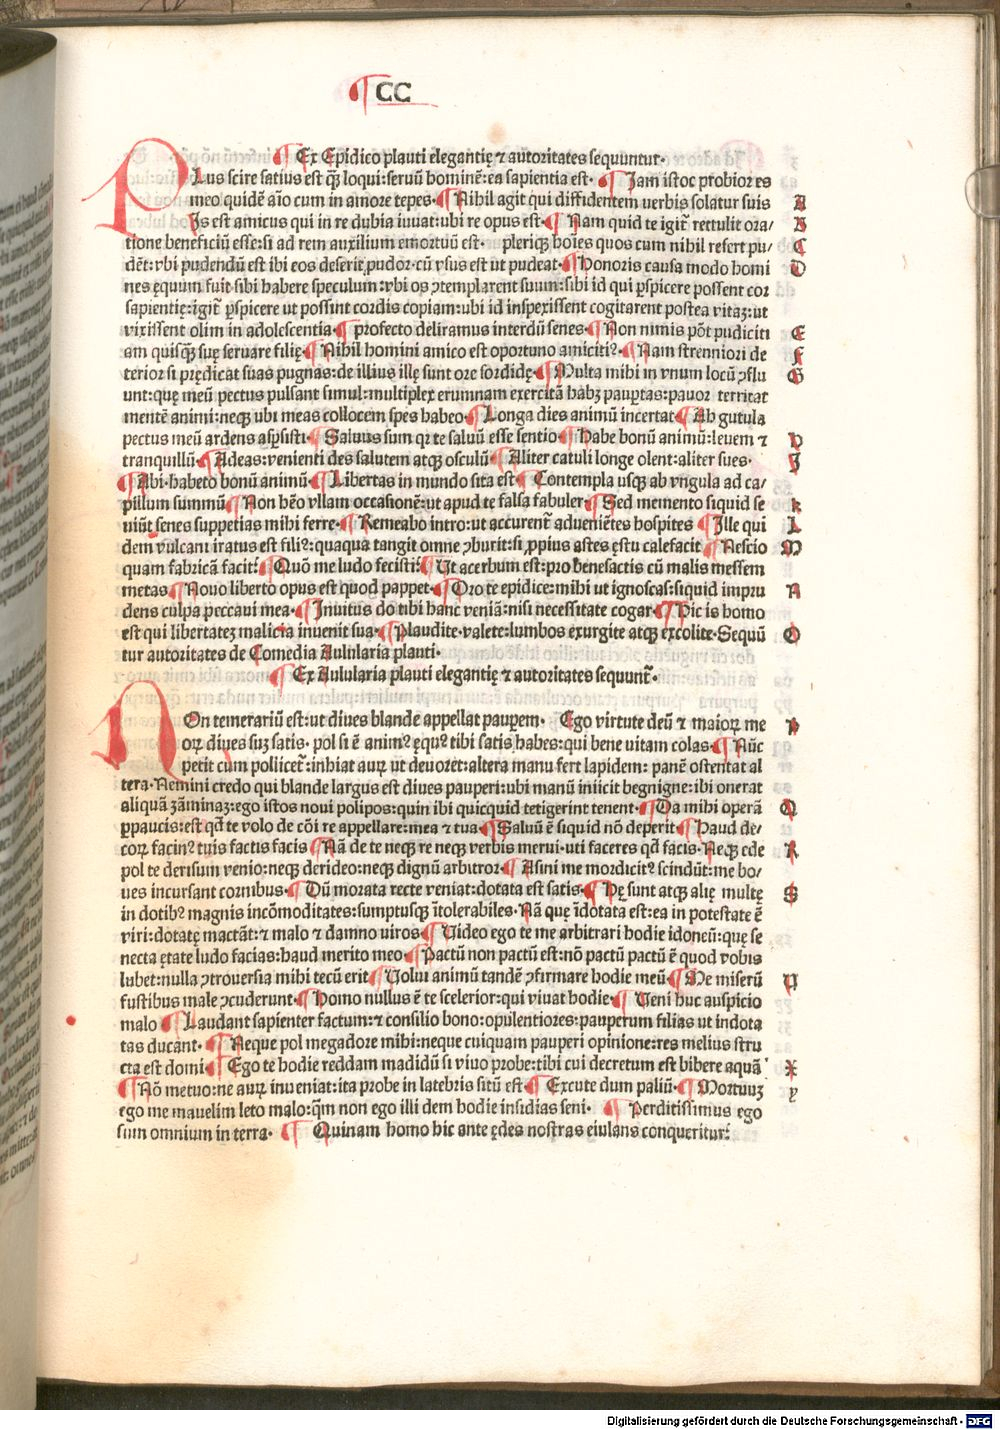 ¶ CC
¶ Ex Epidico plauti elegantię ⁊ autoritates sequuntur·
PLus scire satius est q̃ꝫ loqui:seruũ hominẽ:ea sapientia est· ¶ Jam istoc probior es
meo quidẽ aĩo cum in amore tepes·¶ Nihil agit qui diffidentem verbis solatur suis A
Js est amicus qui in re dubia iuuat:ubi re opus est·¶ Nam quid te igit᷑ rettulit ora/ B
tione beneficiũ esse:si ad rem auxilium emortuũ est· pleriqꝫ hoĩes quos cum nihil refert pu/ C
dẽt:vbi pudendũ est ibi eos deserit pudor·cũ vsus est ut pudeat·¶ Honoris causa modo homi D
nes ęquum fuit sibi habere speculum:vbi os ꝯtemplarent suum:sibi id qui ꝑspicere possent cor
sapientię:igit᷑ ꝑspicere ut possint cordis copiam:ubi id inspexissent cogitarent postea vitaꝫ:ut
vixissent olim in adolescentia·¶ profecto deliramus interdũ senes·¶ Non nimis põt pudiciti E
am quisq̃ꝫ suę seruare filię·¶ Nihil homini amico est oportuno amicitiꝰ·¶ Nam strenniori de F
terior si prędicat suas pugnas:de illius illę sunt ore sordidę·¶ Multa mihi in vnum locũ ꝯflu G
unt:quę meũ pectus pulsant simul:multiplex erumnam exercitã habꝫ pauꝑtas:pauor territat
mentẽ animi:neqꝫ ubi meas collocem spes habeo·¶ Longa dies animũ incertat·¶ Ab gutula
pectus meũ ardens asꝑsisti·¶ Saluus sum qr te saluũ esse sentio·¶ Habe bonũ animũ:leuem ⁊ H
tranquillũ·¶ Adeas:venienti des salutem atqꝫ osculũ·¶ Aliter catuli longe olent:aliter sues· J
¶ Abi·habeto bonũ animũ·¶ Libertas in mundo sita est·¶ Contempla usqꝫ ab vngula ad ca/
pillum summũ·¶ Non hẽo vllam occasionẽ:ut apud te falsa fabuler·¶ Sed memento siquid se k
viũt senes suppetias mihi ferre·¶ Remeabo intro:ut accurent᷑ adueniẽtes hospites ¶ Jlle qui L
dem vulcani iratus est filiꝰ:quaqua tangit omne ꝯburit:si ꝓpius astes ęstu calefacit ¶ Nescio M
quam fabricã facit:¶ Quõ me ludo fecisti:¶ Ut acerbum est:pro benefactis cũ malis messem
metas ¶ Nouo liberto opus est quod pappet·¶ Oro te epidice:mihi ut ignoscas:siquid impru N
dens culpa peccaui mea·¶ Jnuitus do tibi hanc veniã:nisi necessitate cogar·¶ Hic is homo
est qui libertateꝫ malicia inuenit sua·¶ Plaudite·valete:lumbos exurgite atqꝫ excolite·Sequũ O
tur autoritates de Comedia Aulularia plauti·
¶ Ex Aulularia plauti elegantię ⁊ autoritates sequunt᷑·
NOn temerariũ est:ut diues blande appellat pauꝑem· Ego virtute deũ ⁊ maioꝝ me P
oꝝ diues suꝫ satis· pol si ẽ animꝰ ęquꝰ tibi satis habes:qui bene vitam colas·¶ Nũc
petit cum pollicet᷑:inhiat auꝝ ut deuoret:altera manu fert lapidem: panẽ ostentat al
tera·Nemini credo qui blande largus est diues pauperi:ubi manũ iniicit begnigne:ibi onerat
aliquã zãminaꝫ:ego istos noui polipos:quin ibi quicquid tetigerint tenent·¶ Da mihi operã Q
ꝑpaucis:est qđ te volo de cõi re appellare:mea ⁊ tua·¶ Saluũ ẽ siquid nõ deperit·¶ Haud de/
coꝝ facinꝰ tuis factis facis ¶ Nã de te neqꝫ re neqꝫ verbis merui·uti faceres qđ facis·Neqꝫ ede R
pol te derisum venio:neqꝫ derideo:neqꝫ dignũ arbitror·¶ Asini me mordicitꝰ scindũt:me bo/
ues incursant cornibus·¶ Dũ morata recte veniat:dotata est satis·¶ Hę sunt atqꝫ alię multę S
in dotibꝰ magnis incõmoditates:sumptusqꝫ ĩtolerabiles·Nã quę ĩdotata est:ea in potestate ẽ
viri:dotatę mactãt:⁊ malo ⁊ damno uiros·¶ Uideo ego te me arbitrari hodie idoneũ:quę se
necta ętate ludo facias:haud merito meo·¶ Pactũ non pactũ est:nõ pactũ pactũ ẽ quod vobis
lubet:nulla ꝯtrouersia mihi tecũ erit·¶ Uolui animũ tandẽ ꝯfirmare hodie meũ·¶ Me miserũ U
fustibus male ꝯcuderunt·¶ Homo nullus ẽ te scelerior:qui viuat hodie·¶ Ueni huc auspicio
malo ¶ Laudant sapienter factum:⁊ consilio bono:opulentiores:pauperum filias ut indota
tas ducant·¶ Neque pol megadore mihi:neque cuiquam pauperi opinione:res melius stru
cta est domi·¶ Ego te hodie reddam madidũ si viuo probe:tibi cui decretum est bibere aquã· X
¶ Nõ metuo:ne auꝝ inueniat:ita probe in latebris sitũ est·¶ Excute dum paliũ·¶ Mortuuꝫ y
ego me mauelim leto malo:q̃m non ego illi dem hodie insidias seni· ¶ Perditissimus ego
sum omnium in terra· ¶ Quinam homo hic ante ędes nostras eiulans conqueritur:
Digitalisierung gefördert durch die Deutsche Forschungsgemeinschaft · DFG